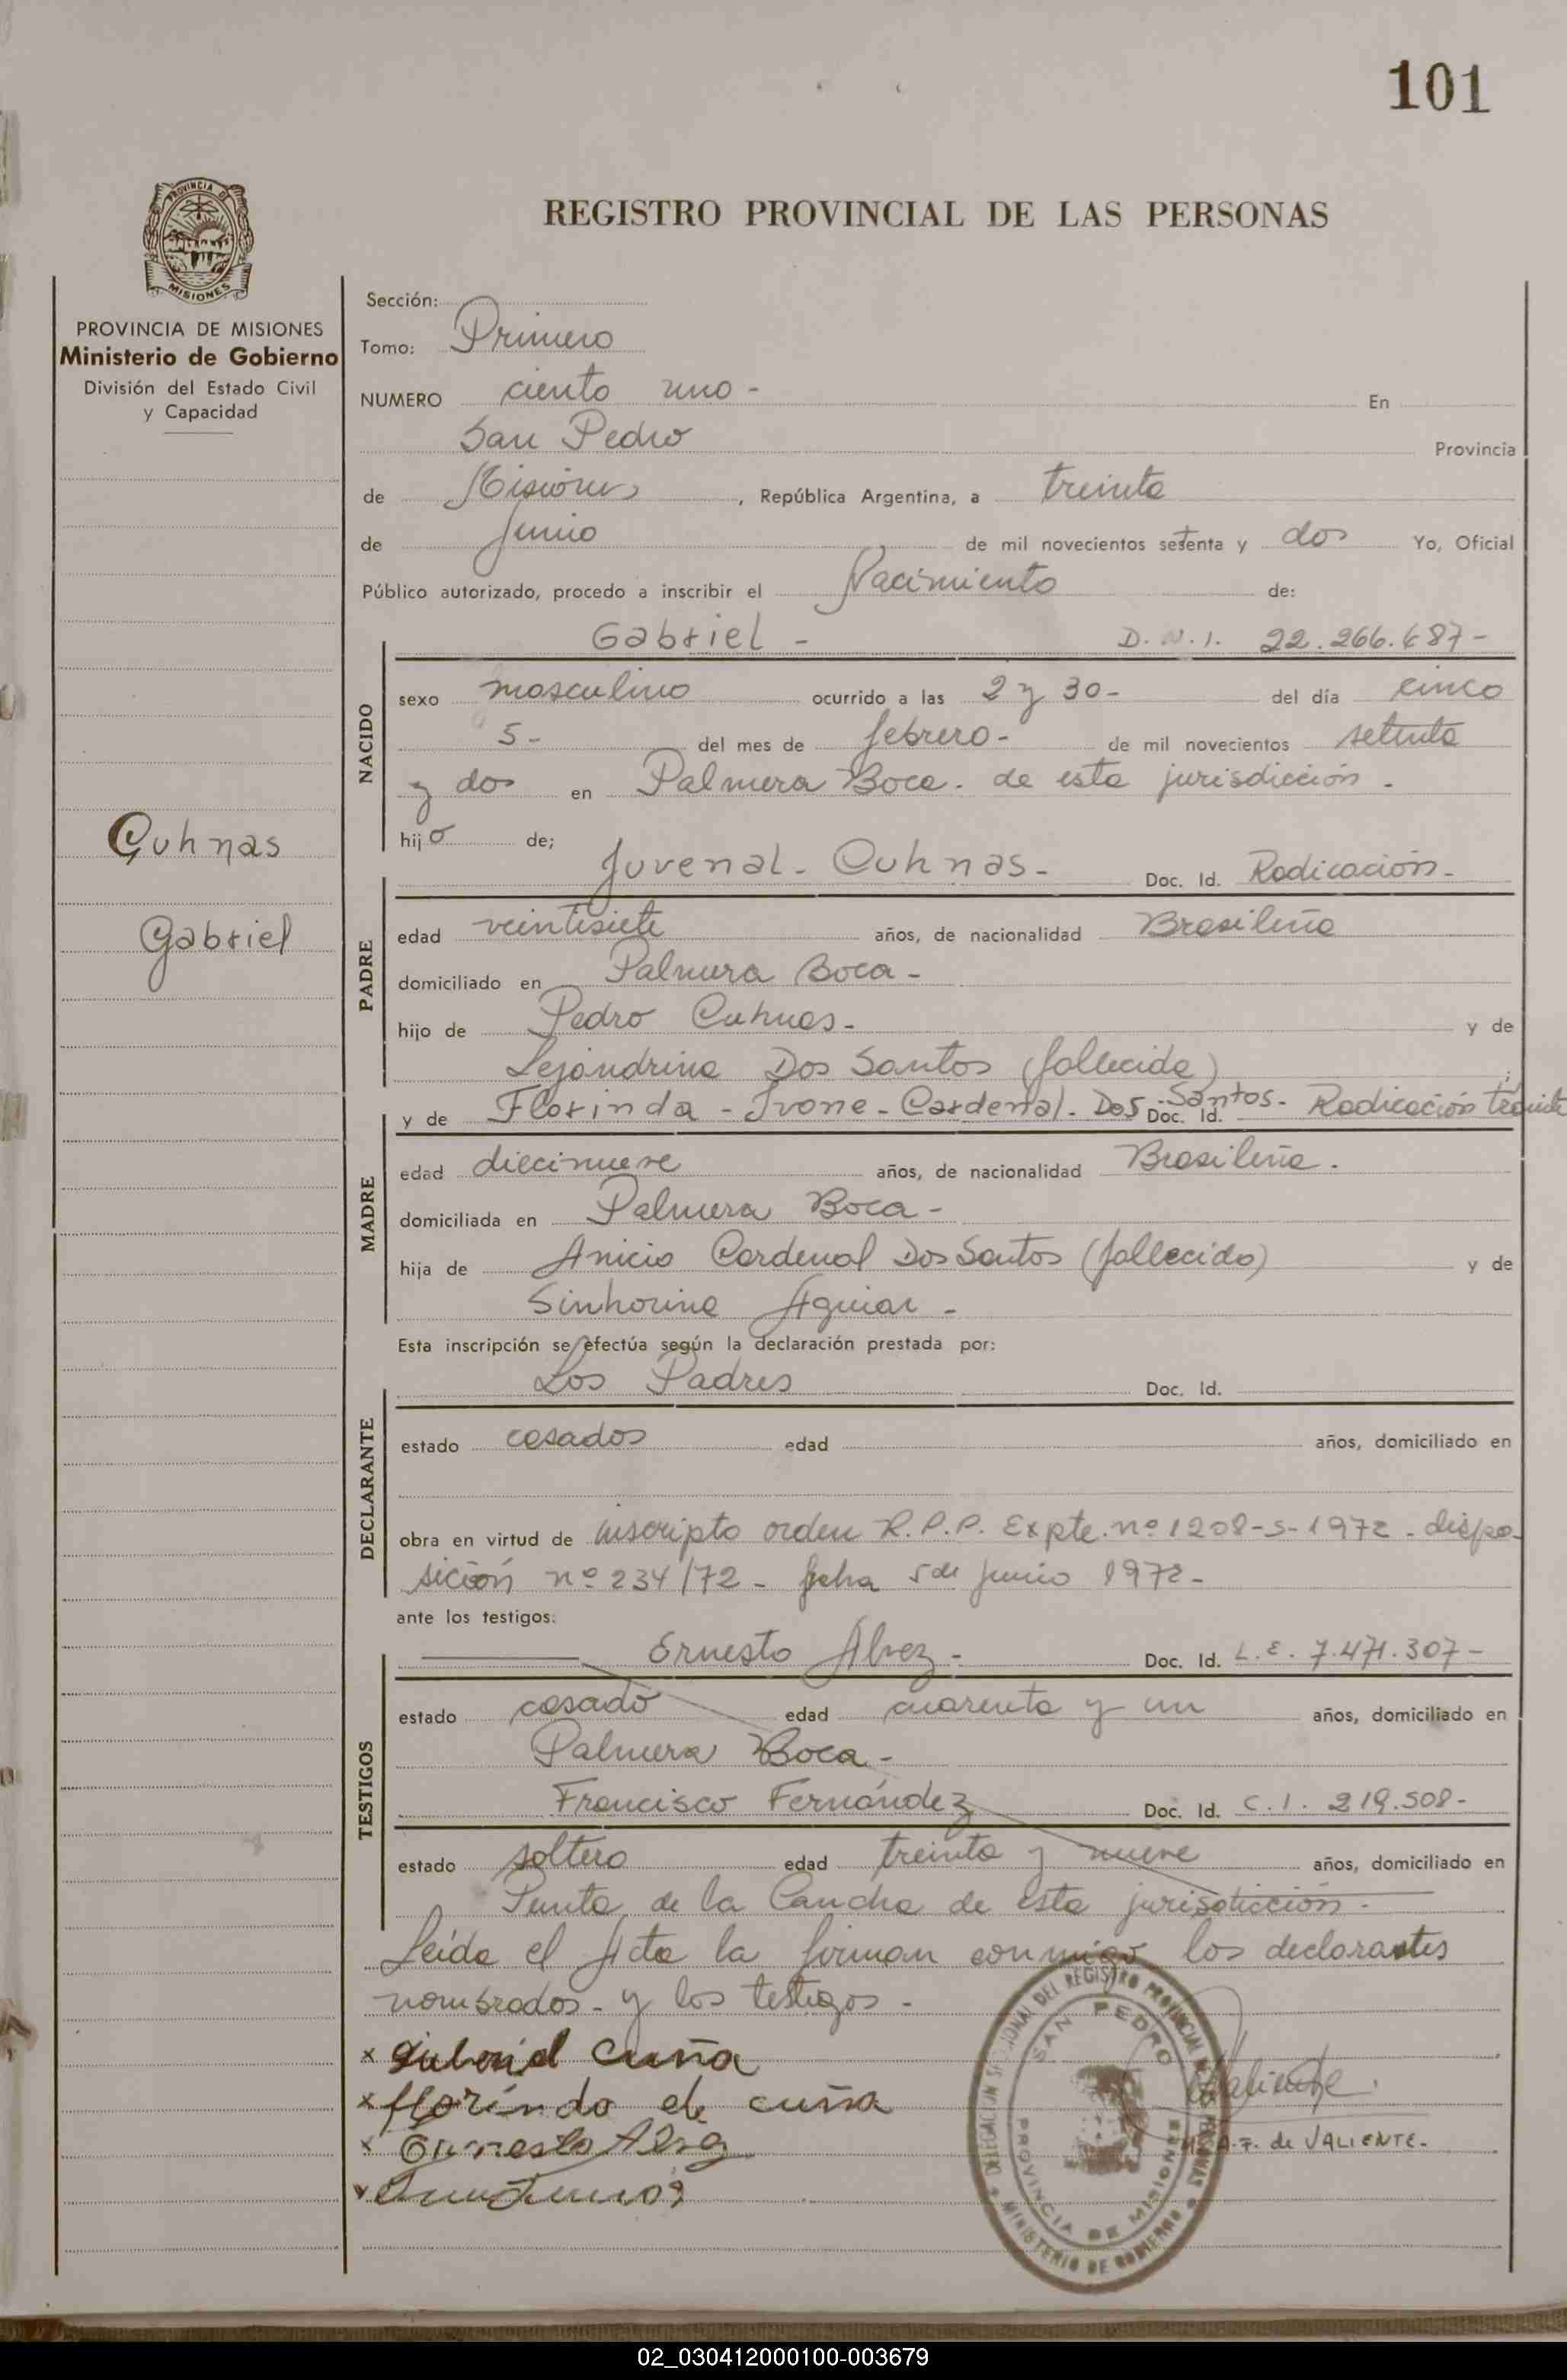 101
REGISTRO PROVINCIAL DE LAS PERSONAS
PROVINCIA DE MISIONES
PROVINCIA DE MISIONES
Ministerio de Gobierno
División del Estado Civil
y Capacidad
Cuhnas
Gabriel
Sección:
Tomo: Primero
NUMERO ciento uno - En
San Pedro Provincia
de Misiones, República Argentina, a treinta
de Junio de mil novecientos setenta y dos Yo, Oficial
Público autorizado, procedo a inscribir el Nacimiento de:
Gabriel - D.N.I. 22.266.687-
NACIDO
sexo masculino ocurrido a las 2 y 30- del día cinco
5- del mes de febrero- de mil novecientos setenta
y dos en Palmera Boca. de esta jurisdicción.
hijo de;
Juvenal - Cuhnas - Doc. Id. Radicación-
PADRE
edad veintisiete años, de nacionalidad Brasileña
domiciliado en Palmera Boca -
hijo de Pedro Cuhnas - y de
Lejandrina Dos Santos (fallecida);
y de Florinda - Ivone - Cardenal - Dos Santos - Doc. Id. Radicación trámite
MADRE
edad diecinueve años, de nacionalidad Brasileña.
domiciliada en Palmera Boca -
hija de Anicio Cardenal Dos Santos (fallecido) y de
Sinhorina Aguiar -
Esta inscripción se efectúa según la declaración prestada por:
Los Padres Doc. Id.
DECLARANTE
estado casados edad años, domiciliado en
obra en virtud de inscripto orden R.P.P. Expte. nº 1208-S-1972 - dispo-
sición nº 234/72 - fecha 5 de junio 1972 -
ante los testigos:
Ernesto Alvez - Doc. Id. L.E. 7.471.307-
TESTIGOS
estado casado edad cuarenta y un años, domiciliado en
Palmera Boca -
Francisco Fernández Doc. Id. C.I. 219.508-
estado soltero edad treinta y nueve años, domiciliado en
Punta de la Cancha de esta jurisdicción -
Leída el Acta la firman conmigo los declarantes
nombrados - y los testigos -
x cuña
x florinda de cuña
x Ernesto Alvez
DELEGACION SECCIONAL DEL REGISTRO PROVINCIAL DE LAS PERSONAS
SAN PEDRO
PROVINCIA DE MISIONES
MINISTERIO DE GOBIERNO
Valiente
A.F. de VALIENTE.
02_030412000100-003679